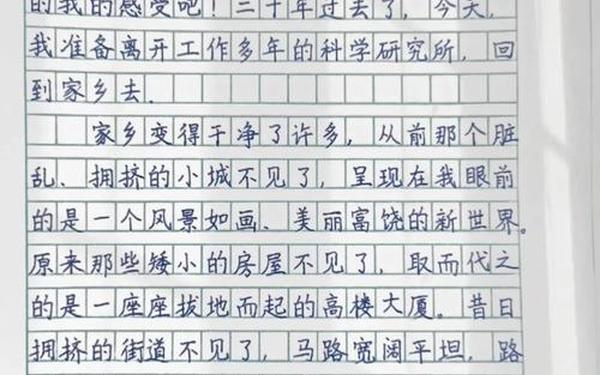 的我的感受吧！三十年过去了，今天，
我准备离开工作多年的科学研究所，回
到家乡去．
家乡变得干净了许多，从前那个脏
乱、拥挤的小城不见了，呈现在我眼前
的是一个风景如画、美丽富饶的新世界。
原来那些矮小的房屋不见了，取而代之
的是一座座拔地而起的高楼大厦。昔日
拥挤的街道不见了，马路宽阔平坦，路